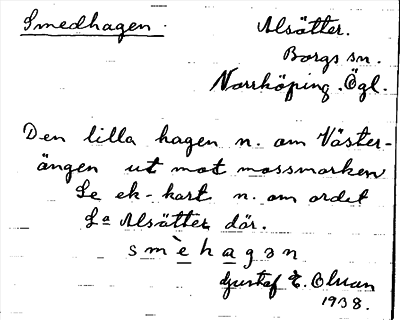 Smedhagen.
Alsätter.
Borgs sn.
Norrköping. Ögl.
Den lilla hagen n. om Väster-
ängen ut mot mossmarken
Se ek-kart n. om ordet
La Alsätter där.
smèhagən
Gustaf E. Olsson
1938.